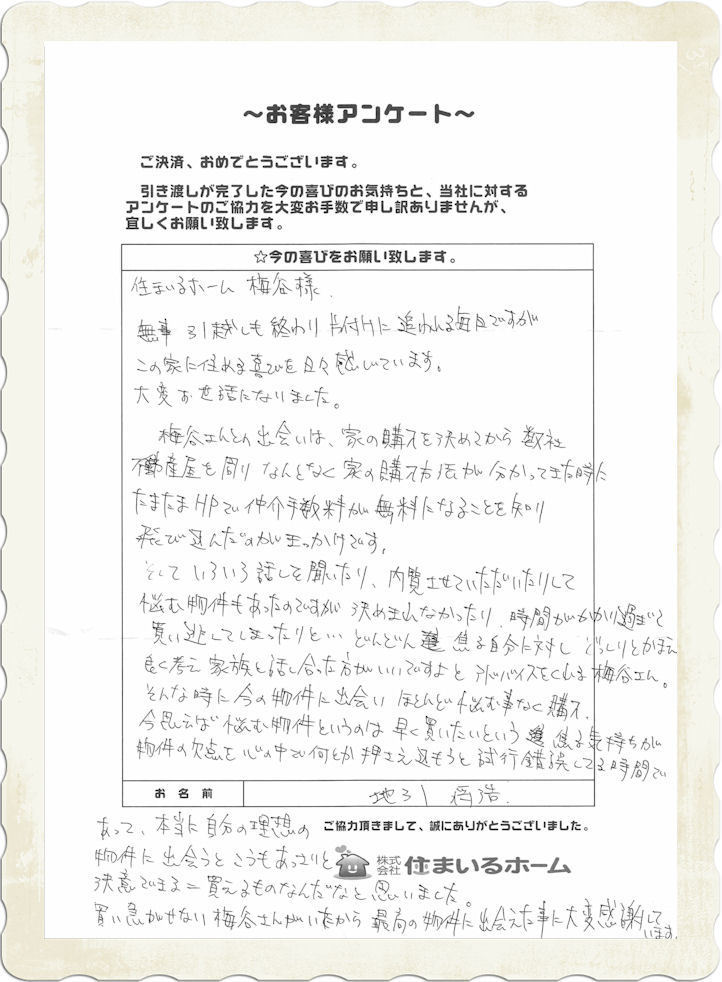 ～お客様アンケート～
ご決済、おめでとうございます。
引き渡しが完了した今の喜びのお気持ちと、当社に対する
アンケートのご協力を大変お手数で申し訳ありませんが、
宜しくお願い致します。
☆今の喜びをお願い致します。
住まいるホーム 梅谷様
無事 引越しも終わり 片付けに追われる毎日ですが
この家に住める喜びを日々感じています。
大変お世話になりました。
梅谷さんとの出会いは、家の購入を決めてから 数社
不動産屋を周り なんとなく家の購入方法が分かってきた時に
たまたまHPで仲介手数料が無料になることを知り
飛び込んだのがきっかけです。
そしていろいろ話しを聞いたり、内覧させていただいたりして
悩む物件もあったのですが 決めきれなかったり、時間がかかり過ぎて
買い逃してしまったりと… どんどん 焦る自分に対し どっしりとかまえ
良く考え 家族と話し合った方がいいですよと アドバイスをくれる梅谷さん。
そんな時に今の物件に出会い ほとんど悩む事なく購入。
今思えば 悩む物件というのは 早く買いたいという 焦る気持ちが
物件の欠点を心の中で何とか押さえ込もうと試行錯誤してる時間で
お名前 地引
あって、本当に自分の理想の
ご協力頂きまして、誠にありがとうございました。
物件に出会うとこうもあっさりと
株式会社 住まいるホーム
決意できる=買えるものなんだなと思いました。
買い急がせない梅谷さんがいたから 最高の物件に出会えた事に大変感謝して
います。